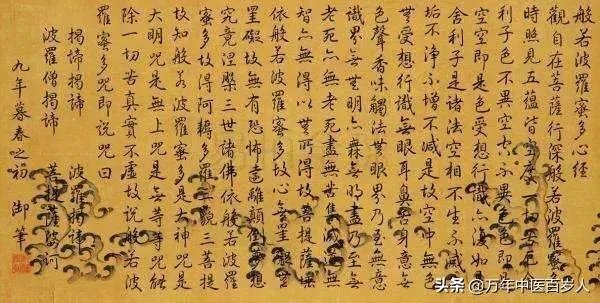 般若波羅蜜多心經
觀自在菩薩行深般若波羅蜜多
時照見五蘊皆空度一切苦厄舍
利子色不異空空不異色色即是
空空即是色受想行識亦復如是
舍利子是諸法空相不生不滅不
垢不淨不增不減是故空中無色
無受想行識無眼耳鼻舌身意無
色聲香味觸法無眼界乃至無意
識界無無明亦無無明盡乃至無
老死亦無老死盡無苦集滅道無
智亦無得以無所得故菩提薩埵
依般若波羅蜜多故心無罣礙無
罣礙故無有恐怖遠離顛倒夢想
究竟涅槃三世諸佛依般若波羅
蜜多故得阿耨多羅三藐三菩提
故知般若波羅蜜多是大神咒是
大明咒是無上咒是無等等咒能
除一切苦真實不虛故說般若波
羅蜜多咒即說咒曰
揭諦揭諦 波羅揭諦
波羅僧揭諦 菩提薩婆訶
九年暮春之初 御筆
头条 @万年中医百岁人